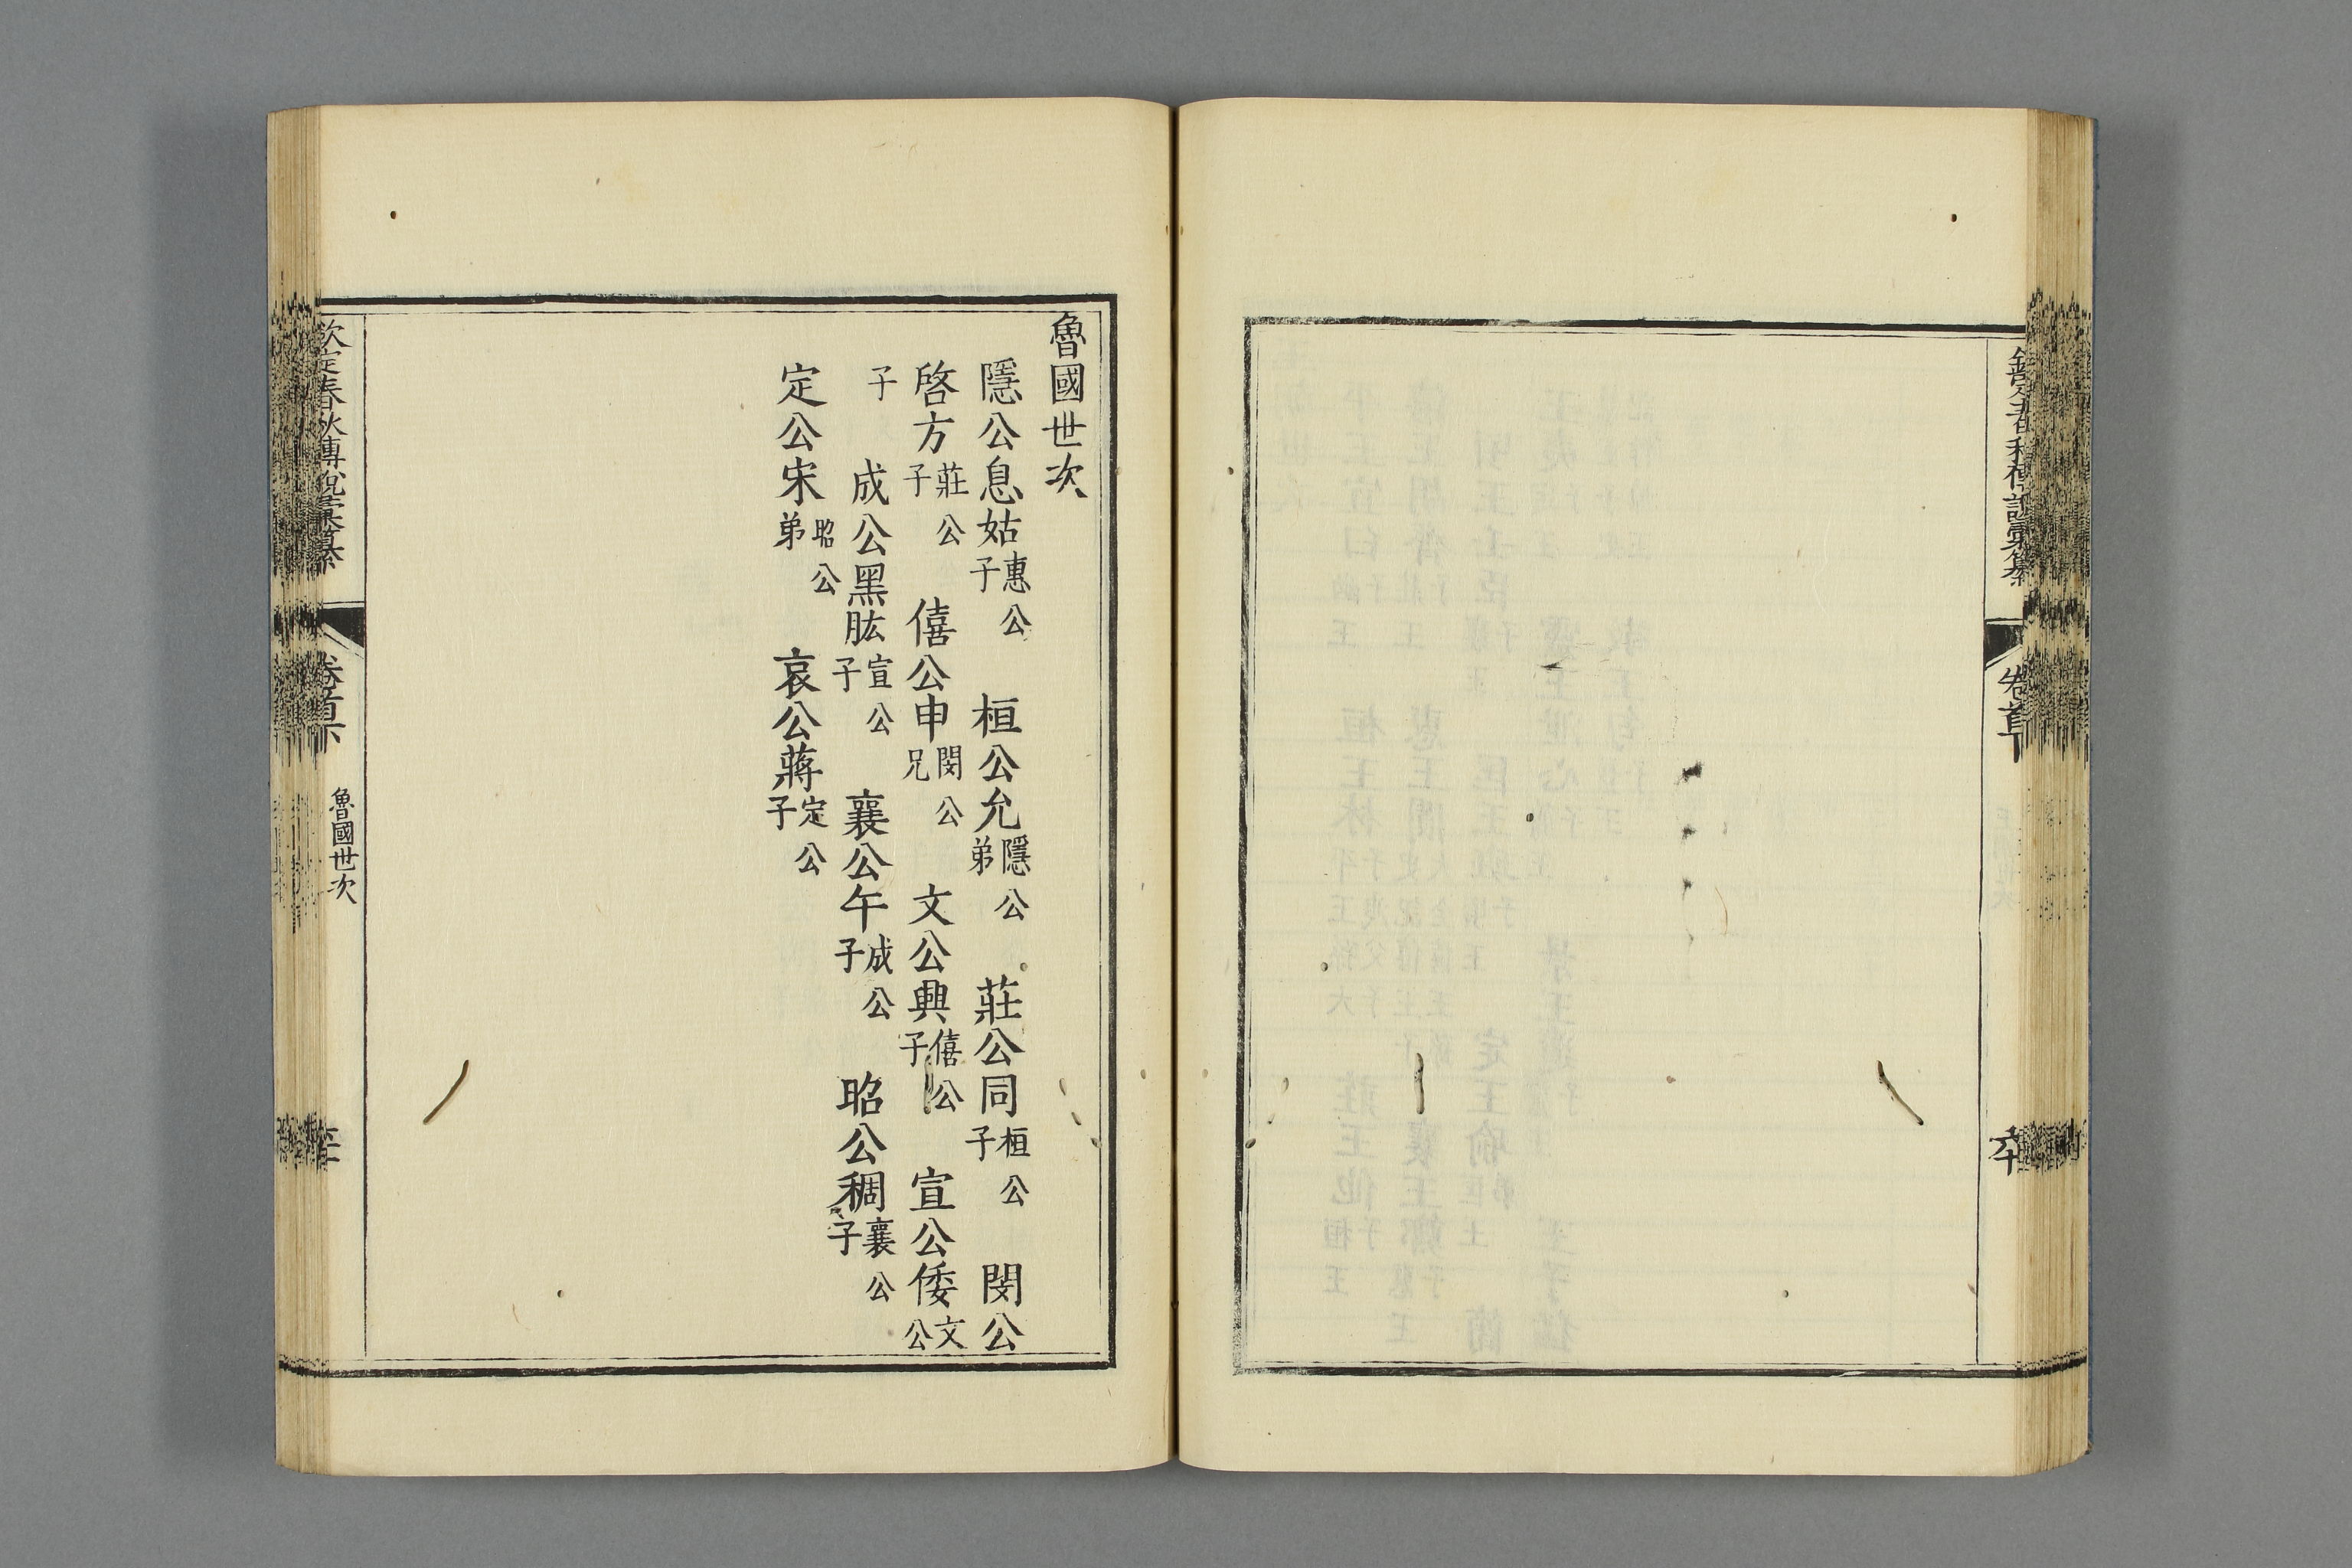 魯國世次
隱公息姑惠公子 桓公允隱公弟 莊公同桓公子 閔公
啓方莊公子 僖公申閔公兄 文公興僖公子 宣公倭文公
子 成公黑肱宣公子 襄公午成公子 昭公稠襄公子
定公宋昭公弟 哀公蔣定公子
欽定春秋傳說彙纂
卷首下
魯國世次